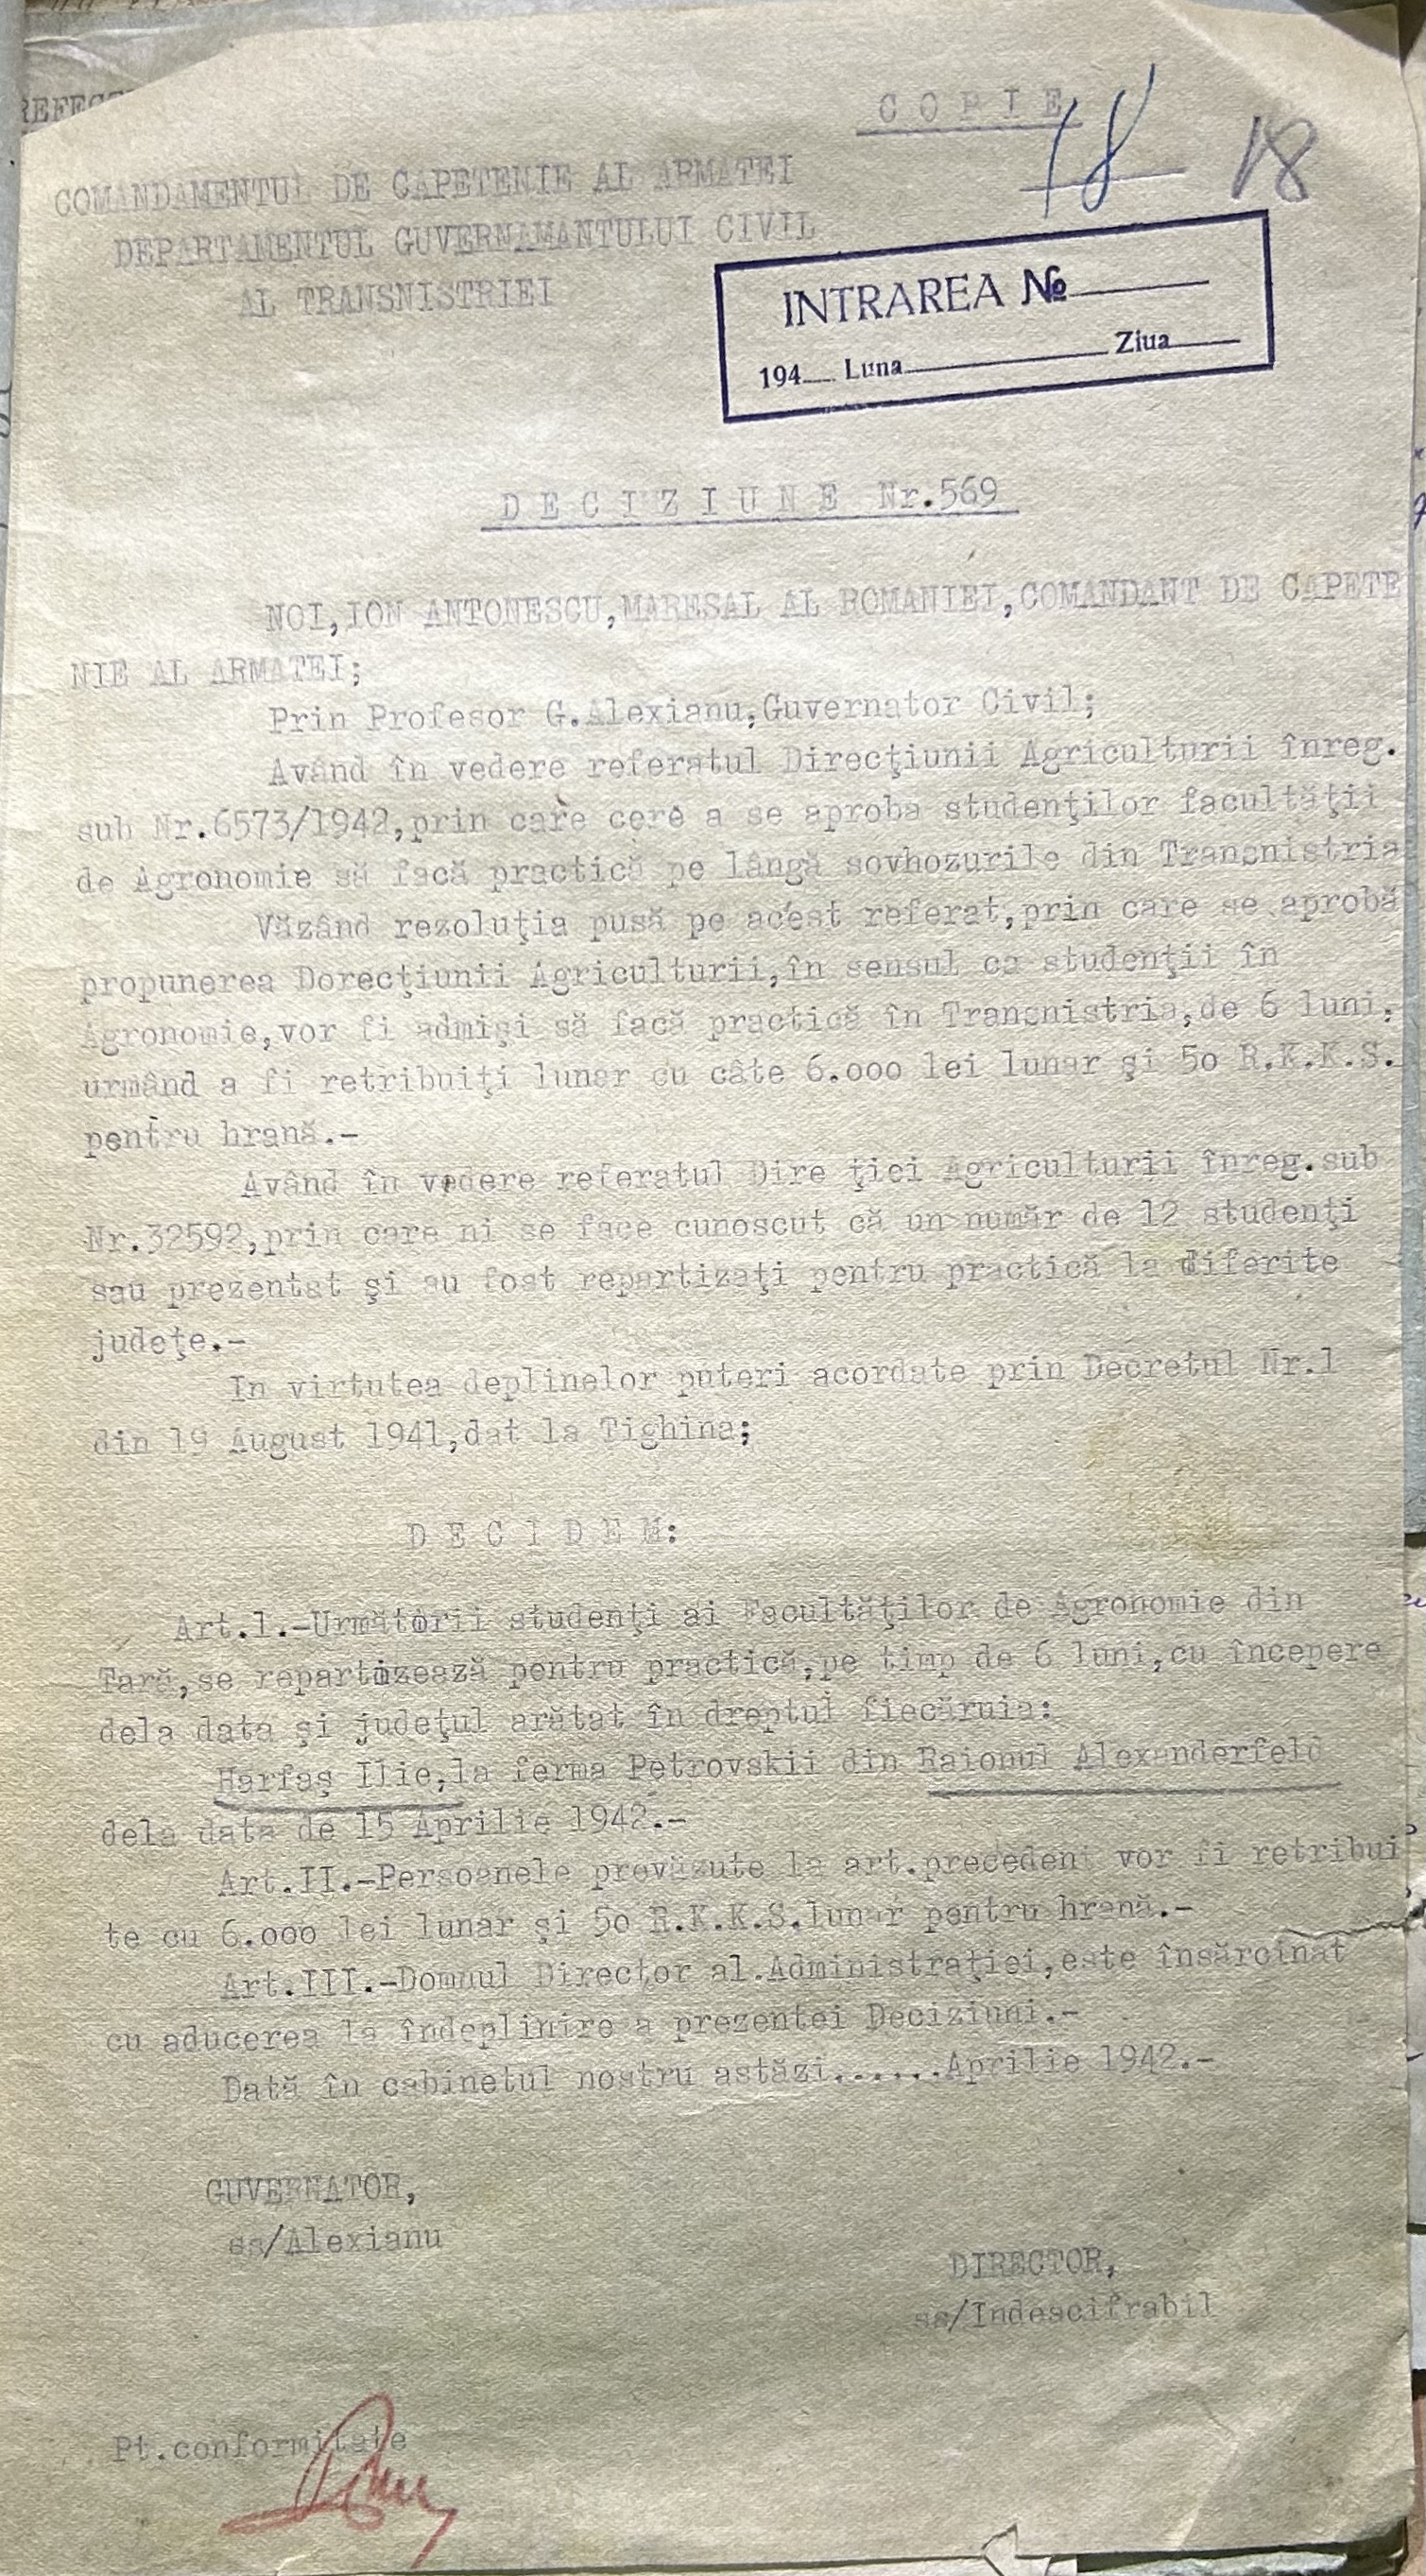 C O P I E
18 18
COMANDAMENTUL DE CAPETENIE AL ARMATEI
DEPARTAMENTUL GUVERNAMANTULUI CIVIL
AL TRANSNISTRIEI
INTRAREA №
194 Luna Ziua
D E C I Z I U N E Nr.569
NOI,ION ANTONESCU,MARESAL AL ROMANIEI,COMANDANT DE CAPETE
NIE AL ARMATEI;
Prin Profesor G.Alexianu,Guvernator Civil;
Având în vedere referatul Direcţiunii Agriculturii înreg.
sub Nr.6573/1942,prin care cere a se aproba studenţilor facultăţii
de Agronomie să facă practică pe lângă sovhozurile din Transnistria
Văzând rezoluţia pusă pe acest referat,prin care se aprobă
propunerea Dorecţiunii Agriculturii,în sensul ca studenţii în
Agronomie,vor fi admişi să facă practică în Transnistria,de 6 luni,
urmând a fi retribuiţi lunar cu câte 6.000 lei lunar şi 50 R.K.K.S.
pentru hrană.-
Având în vedere referatul Dire ţiei Agriculturii înreg.sub
Nr.32592,prin care ni se face cunoscut că un număr de 12 studenţi
sau prezentat şi au fost repartizaţi pentru practică la diferite
judeţe.-
In virtutea deplinelor puteri acordate prin Decretul Nr.1
din 19 August 1941,dat la Tighina;
D E C I D E M:
Art.1.-Următorii studenţi ai Facultăţilor de Agronomie din
Tară,se repartizează pentru practică,pe timp de 6 luni,cu începere
dela data şi judeţul arătat în dreptul fiecăruia:
Harfaş Ilie,la ferma Petrovskii din Raionul Alexanderfeld
dela data de 15 Aprilie 1942.-
Art.II.-Persoanele prevăzute la art.precedent vor fi retribui
te cu 6.000 lei lunar şi 50 R.K.K.S.lunar pentru hrană.-
Art.III.-Domnul Director al.Administraţiei,este însărcinat
cu aducerea la îndeplinire a prezentei Deciziuni.-
Dată în cabinetul nostru astăzi.......Aprilie 1942.-
GUVERNATOR,
ss/Alexianu
DIRECTOR,
ss/Indescifrabil
Pt.conformitate